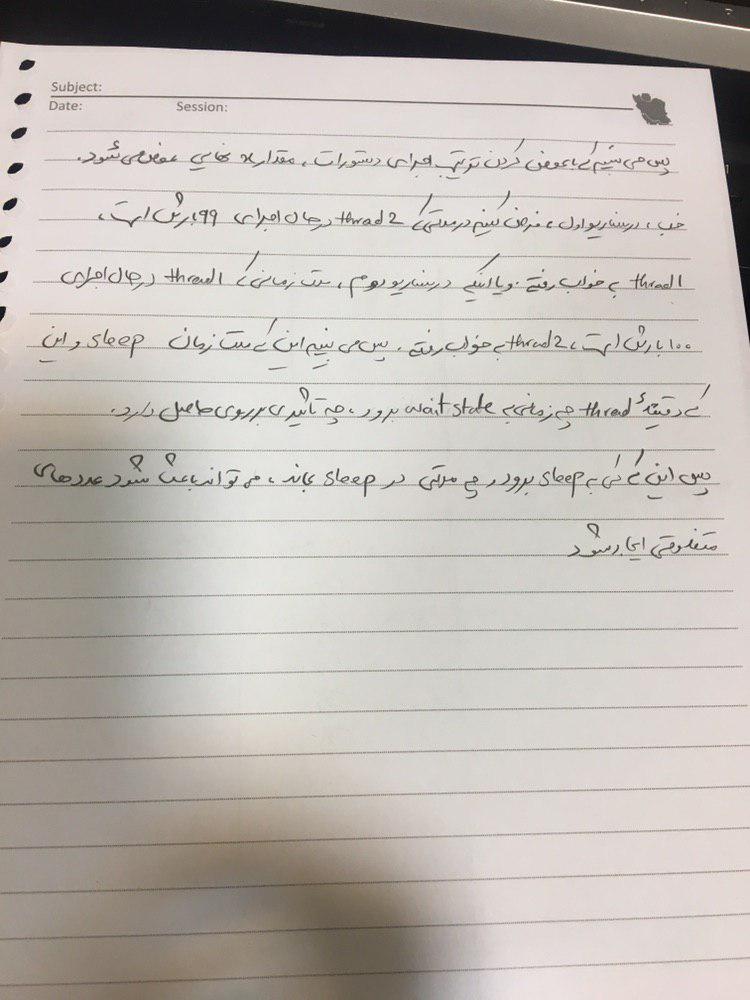 Subject:
Date: Session:
پس می بینیم که با عوض کردن ترتیب اجرای دستورات، مقدار نهایی عوض می شود.
خب، در سناریو اول، فرض کنیم در مدتی که thread 2 در حال اجرای ۹۹ بارش است،
thread1 به خواب رفته. و یا اینکه در سناریو دوم، مدت زمانی که thread1 در حال اجرای
۱۰۰ بارش است، thread 2 به خواب رفته. پس می بینیم این که مدت زمان sleep و این
که دقیقاً thread چه زمانی به wait state برود، چه تاثیری بر روی حاصل دارد.
پس این که کی به sleep برود و چه مدتی در sleep بماند، می تواند باعث شود عددهای
متفاوتی ایجاد شود